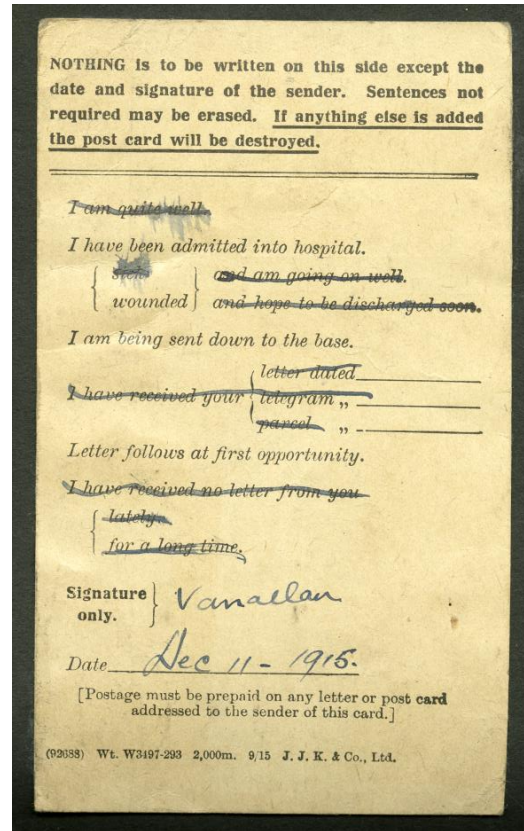 NOTHING is to be written on this side except the
date and signature of the sender. Sentences not
required may be erased. If anything else is added
the post card will be destroyed.
I am quite well.
I have been admitted into hospital.
{ sick } and am going on well.
{ wounded } and hope to be discharged soon.
I am being sent down to the base.
letter dated
I have received your { telegram „
parcel „
Letter follows at first opportunity.
I have received no letter from you
{ lately.
for a long time.
Signature } Vanallan
only.
Date Dec 11 - 1915.
[Postage must be prepaid on any letter or post card
addressed to the sender of this card.]
(92688) Wt. W3497-293 2,000m. 9/15 J. J. K. & Co., Ltd.